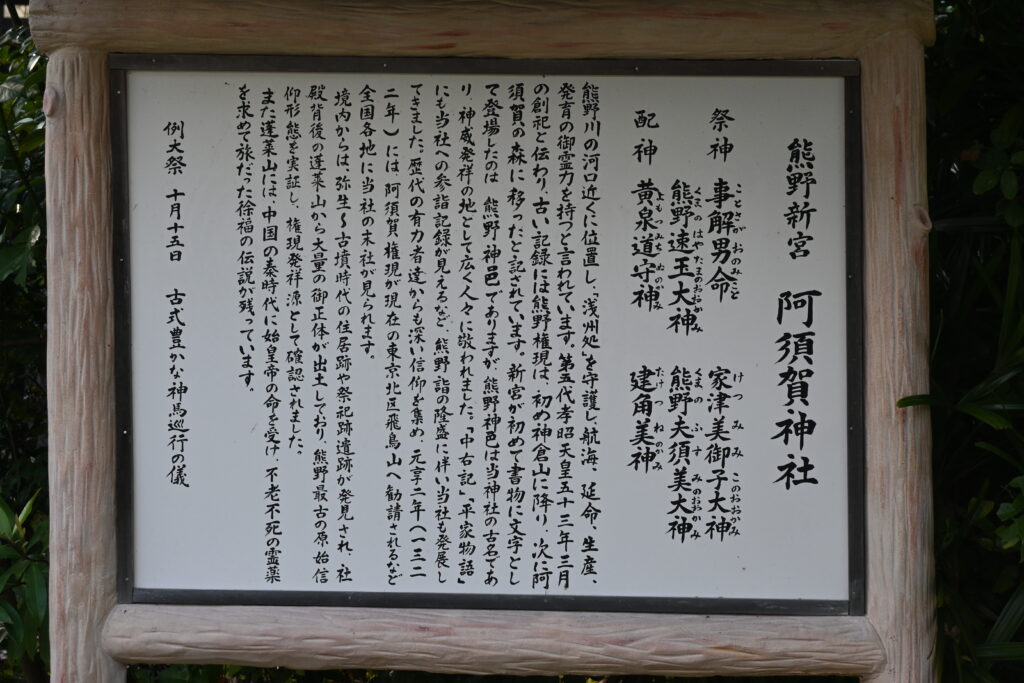 熊野新宮　阿須賀神社
祭神　事解男命　家津美御子大神
ことさかおのみこと　けつみみこのおおかみ
熊野速玉大神　熊野夫須美大神
くまのはやたまのおおかみ　くまのふすみのおおかみ
配神　黄泉道守神　建角美神
よもつみちもりのかみ　たけつねのかみ
熊野川の河口近くに位置し、「浅州処」を守護し、航海、延命、生産、
発育の御霊力を持つと言われています。第五代孝昭天皇五十三年三月
の創祀と伝わり、古い記録には熊野権現は、初め神倉山に降り、次に阿
須賀の森に移ったと記されています。新宮が初めて書物に文字とし
て登場したのは　熊野神邑でありますが、熊野神邑は当神社の古名であ
り、神威発祥の地として広く人々に敬われました。「中右記」「平家物語」
にも当社への参詣記録が見えるなど、熊野詣の隆盛に伴い当社も発展し
てきました。歴代の有力者達からも深い信仰を集め、元享二年（一三二
二年）には、阿須賀権現が現在の東京北区飛鳥山へ勧請されるなど
全国各地に当社の末社が見られます。
境内からは弥生～古墳時代の住居跡や祭祀跡遺跡が発見され、社
殿背後の蓬莱山から大量の御正体が出土しており、熊野最古の原始信
仰形態を実証し、権現発祥源として確認されました。
また蓬莱山には、中国の秦時代に始皇帝の命を受け、不老不死の霊薬
を求めて旅だった徐福の伝説が残っています。
例大祭　十月十五日　古式豊かな神馬巡行の儀